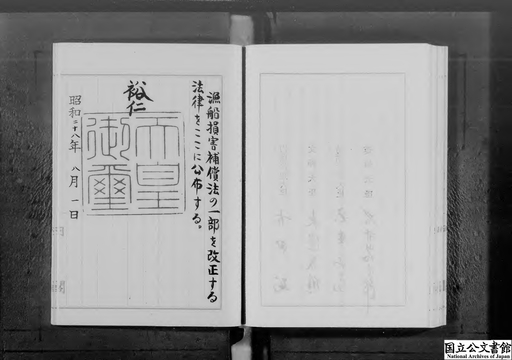 漁船損害補償法の一部を改正する
法律をここに公布する。
裕仁
天皇
御璽
昭和二十八年 八月 一日
国立公文書館
National Archives of Japan